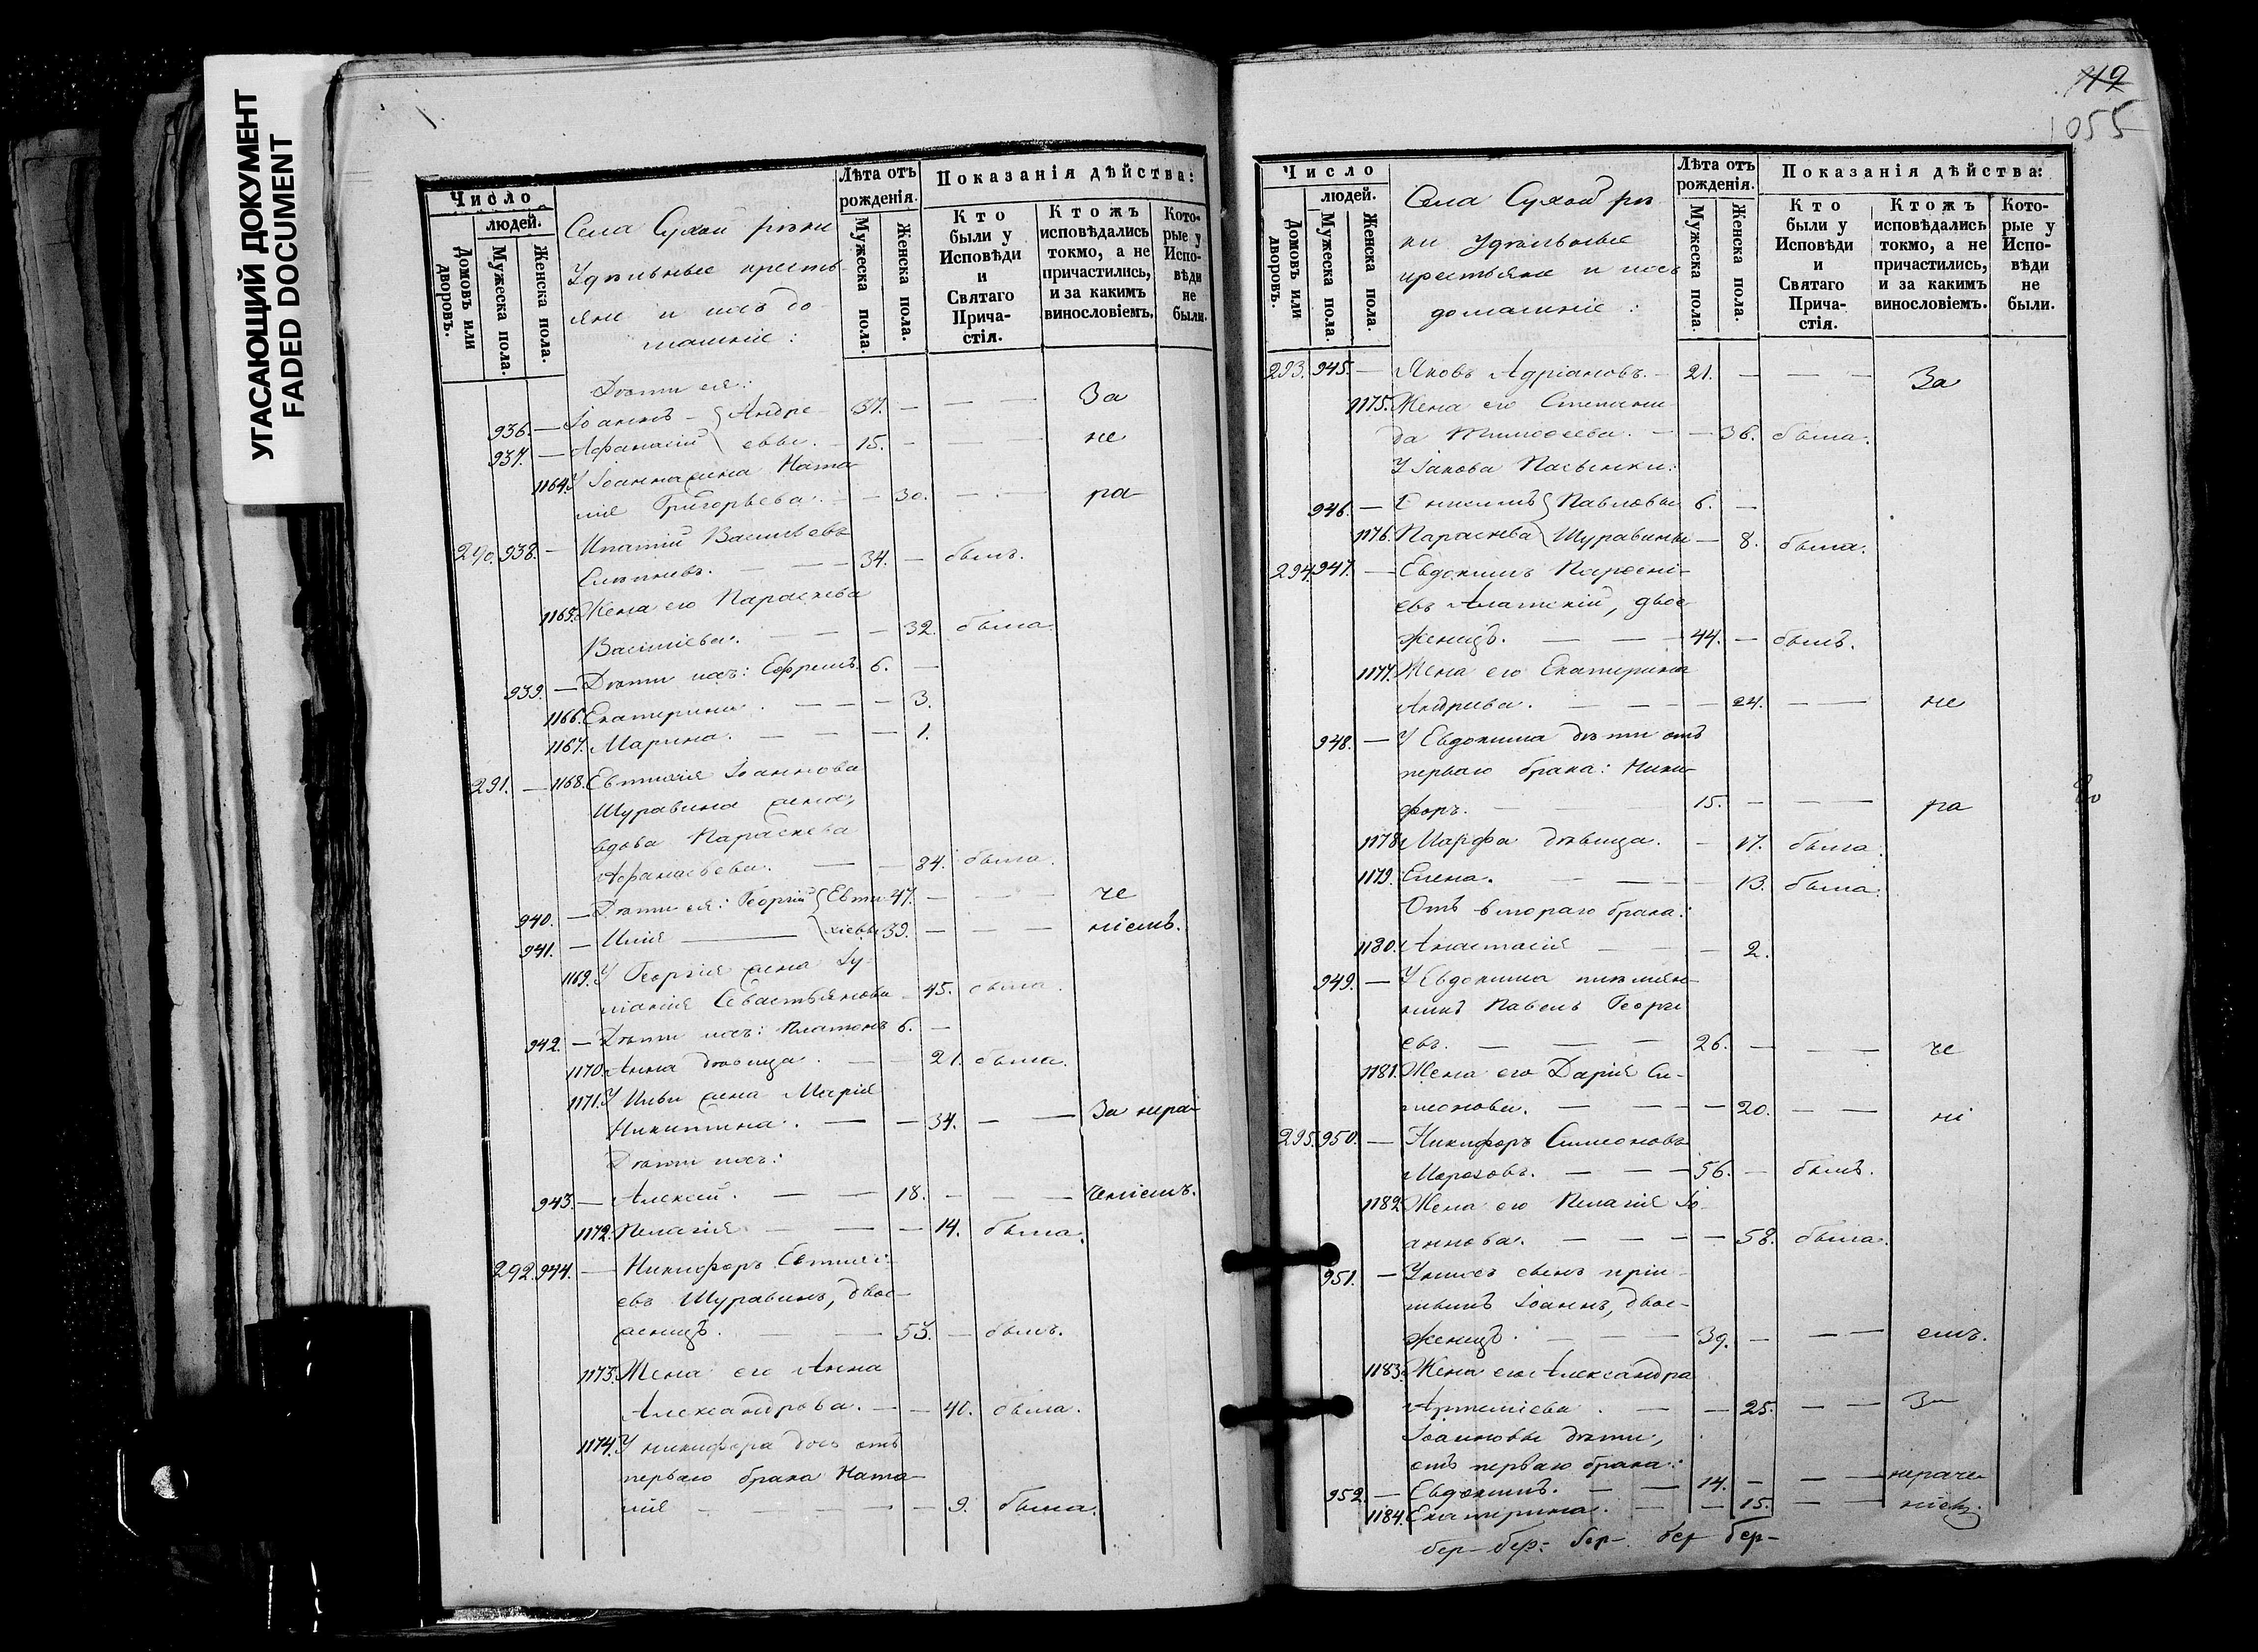 УГАСАЮЩИЙ ДОКУМЕНТ
FADED DOCUMENT
Число
людей.
Домовъ или дворовъ.
Мужеска пола.
Женска пола.
Села Сухой рѣки
Удѣльные кресть-
яне и ихъ до-
машніе:
Лѣта отъ рожденія.
Мужеска пола.
Женска пола.
Показанія дѣйства:
Кто были у Исповѣди и Святаго Прича-стія.
Ктожъ исповѣдались токмо, а не причастились, и за какимъ винословіемъ.
Кото-рые у Испо-вѣди не были.
Дѣти ея:
936. — Іоаннъ } Андре- 37. — — — За
937. — Афанасій } евы. 15. — — — не
1164. У Іоанна жена Ната-
лія Григорьева. — — 30. — — ра-
290. 938. — Ипатій Васильевъ
34. — былъ.
1165. Жена его Параскева
Васильева. — — — 32. была.
939. — Дѣти ихъ: Ефремъ. 6. —
1166. Екатерина. — — — 3.
1167. Марина. — — — 1.
291. — 1168. Евтихія Іоаннова
Шуравина жена,
вдова Параскева
Афанасьева. — — 84. была.
940. — Дѣти ея: Георгій } Евти- 47. — — — че
941. — Илія — } хіевы 39. — — — ніемъ.
1169. У Георгія жена Іу-
ліанія Севастьянова — 45. была.
942. — Дѣти ихъ: Платонъ 6. —
1170. Анна дѣвица. — — 21. была.
1171. У Ильи жена Марія
Никитина. — — 34. — — За нера-
Дѣти ихъ:
943. — Алексій. — — 18. — — — ченіемъ.
1172. Пелагія — — — 14. была.
292. 944. — Никифоръ Евтихі-
евъ Шуравинъ, двое-
женецъ. — — 53. — былъ.
1173. Жена его Анна
Александрова. — — 40. была.
1174. У Никифора дочь отъ
перваго брака Ната-
лія — — — 9. была.
119
1055
Число
людей.
Домовъ или дворовъ.
Мужеска пола.
Женска пола.
Села Сухой рѣ-
ки Удѣльные
крестьяне и ихъ
домашніе:
Лѣта отъ рожденія.
Мужеска пола.
Женска пола.
Показанія дѣйства:
Кто были у Исповѣди и Святаго Прича-стія.
Ктожъ исповѣдались токмо, а не причастились, и за какимъ винословіемъ.
Кото-рые у Испо-вѣди не были.
293. 945. — Яковъ Адріановъ. — 21. — — — За
1175. Жена его Степани-
да Тимофеева. — — 36. была.
У Іакова Пасынки:
946. — } Павловы 6. —
1176. Параскева } Шуравины — 8. была.
294. 947. — Евдокимъ Парѳені-
евъ Алатскій, двое-
женецъ. — — 44. — былъ.
1177. Жена его Екатерина
Андреева. — — — 24. — — не
948. — У Евдокима дѣти отъ
перваго брака: Ники-
форъ. — — 15. — — ра
1178. Марфа дѣвица. — 17. была.
1179. Елена. — — — 13. была.
Отъ втораго брака:
1180. Анастасія — — — 2.
949. — У Евдокима племян-
никъ Павелъ Георгі-
евъ. — — — 26. — — — че
1181. Жена его Дарія Си-
меонова. — — — 20. — — ні
295. 950. — Никифоръ Симеоновъ
Морозовъ. — — — 56. — былъ.
1182. Жена его Пелагія Іо-
аннова. — — — 58. была.
951. — У нихъ сынъ прі-
емышъ Іоаннъ, двое-
женецъ. — — — 39. — — — емъ.
1183. Жена его Александра
Артеміева. — — 25. — — За
Іоанновы дѣти,
отъ перваго брака:
952. — Евдокимъ. — — 14. — — — нераче-
1184. Екатерина. — — 15. — — ніемъ.
бер- бер- бер- бер- бер-